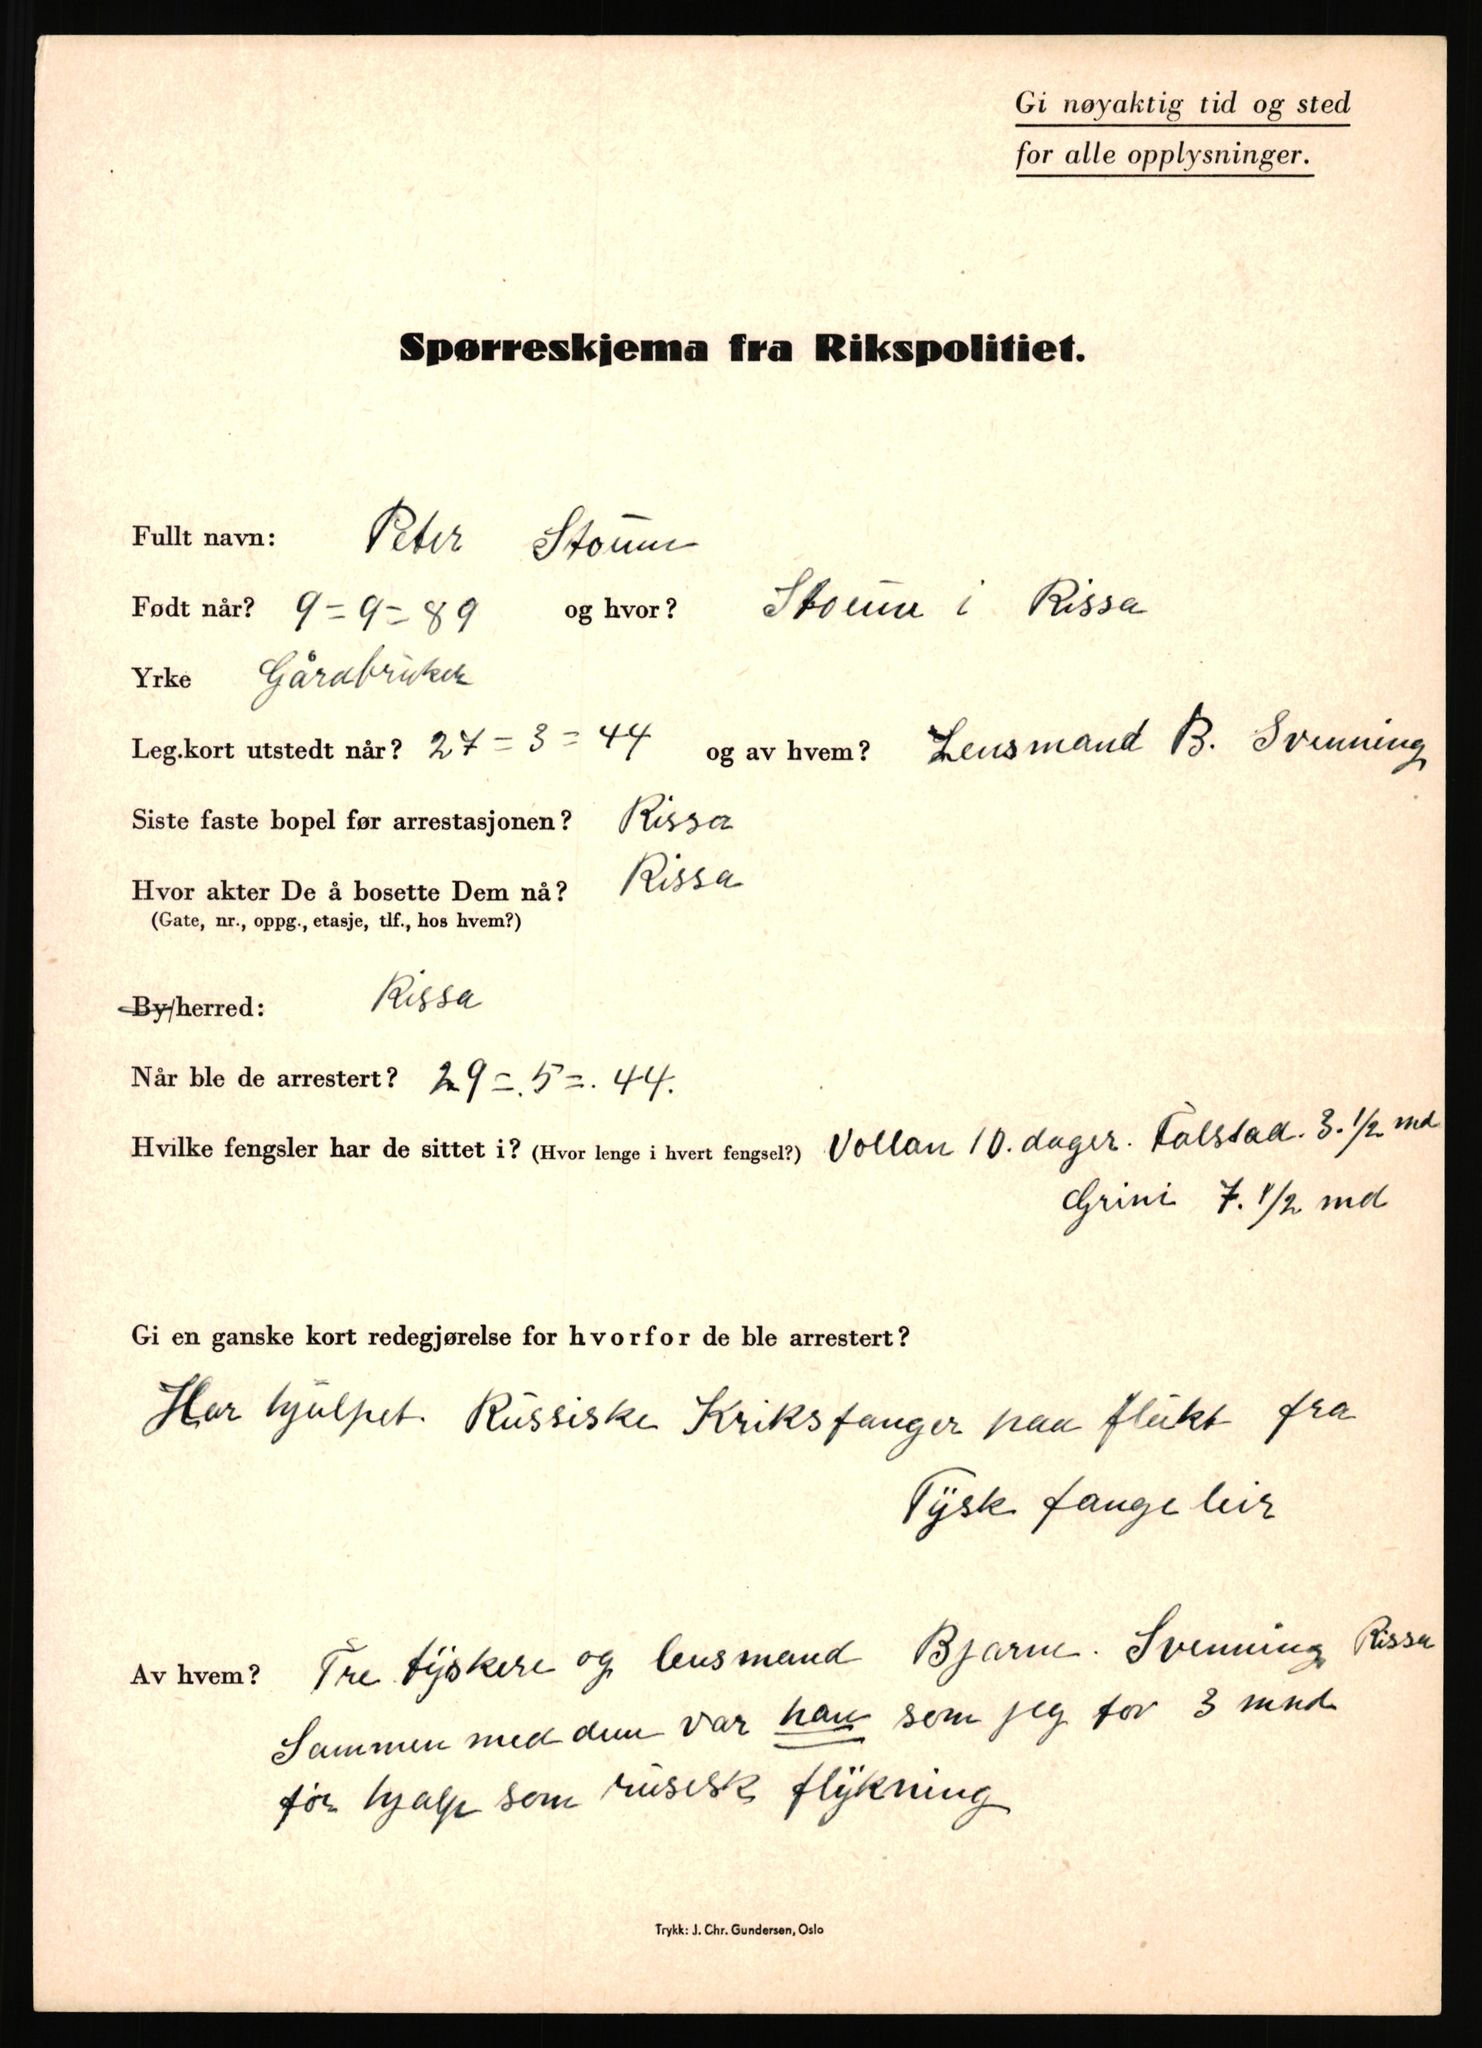 Gi nøyaktig tid og sted
for alle opplysninger.
Spørreskjema fra Rikspolitiet.
Fullt navn: Peter Stoum
Født når? 9=9=89 og hvor? Stoum i Rissa
Yrke Gårdbruker
Leg.kort utstedt når? 27=3=44 og av hvem? Lensmand B. Svenning
Siste faste bopel før arrestasjonen? Rissa
Hvor akter De å bosette Dem nå? Rissa
(Gate, nr., oppg., etasje, tlf., hos hvem?)
By/herred: Rissa
Når ble de arrestert? 29=.5=.44.
Hvilke fengsler har de sittet i? (Hvor lenge i hvert fengsel?) Vollan 10. dager. Falstad. 3.1/2 md
Grini 7.1/2 md
Gi en ganske kort redegjørelse for hvorfor de ble arrestert?
Har hjulpet. Russiske Kriksfanger paa flukt fra
Tysk fange leir
Av hvem? Tre tyskere og lensmand Bjarne. Svenning Rissa
Sammen med dem var han som jeg for 3 mnd
før hjalp som rusisk flykning
Trykk: J. Chr. Gundersen, Oslo